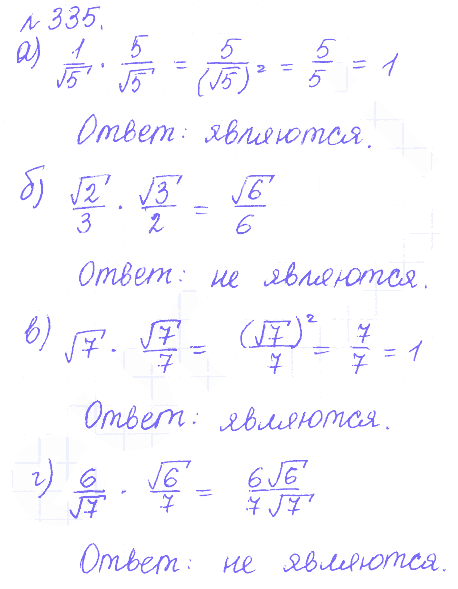 № 335.
а) 1/√5 · 5/√5 = 5/(√5)² = 5/5 = 1
Ответ: являются.
б) √2/3 · √3/2 = √6/6
Ответ: не являются.
в) √7 · √7/7 = (√7)²/7 = 7/7 = 1
Ответ: являются.
г) 6/√7 · √6/7 = 6√6/7√7
Ответ: не являются.